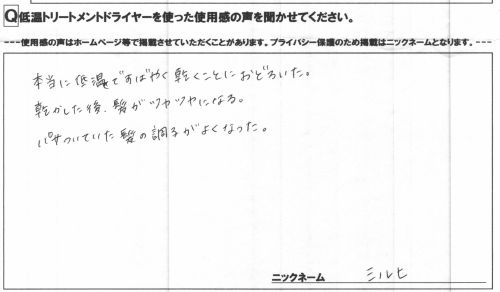 Q低温トリートメントドライヤーを使った使用感の声を聞かせてください。
----使用感の声はホームページ等で掲載させていただくことがあります。プライバシー保護のため掲載はニックネームとなります。----
本当に低温ですばやく乾くことにおどろいた。
乾かした後、髪がツヤツヤになる。
パサついていた髪の調子がよくなった。
ニックネーム ミルヒ